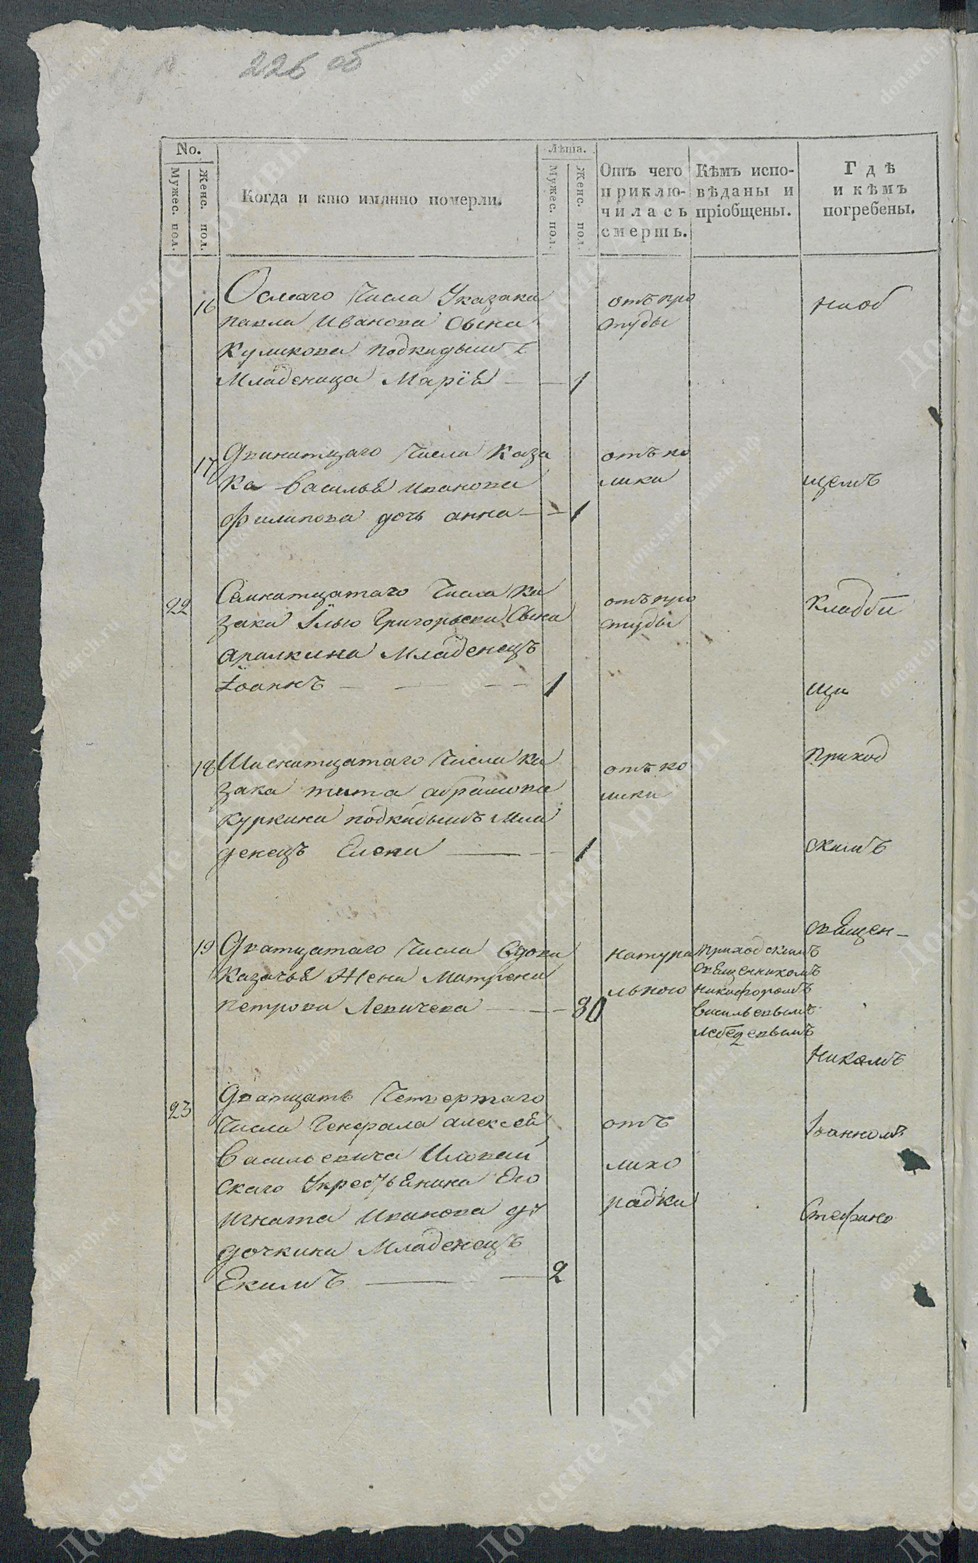 226 об
No.
Мужес. пол.
Женс. пол.
Когда и кто имянно померли.
Лѣта.
Мужес. пол.
Женс. пол.
Отъ чего
приклю-
чилась
смерть.
Кѣмъ испо-
вѣданы и
прiобщены.
Гдѣ
и кѣмъ
погребены.
16
Осмаго Числа Указака
павла Иванова Сына
Куликова подкидыш
Младеница Марiя 1
отъ про
студы
на об
17
Числа Каза
ка василья иванова
Филипова дочь анна 1
отъ ко
лики
щемъ
22
Семнатцатаго Числа Ка
зака Илью Григорьева Сына
аралкина Младенецъ
Iоаннъ 1
отъ про
студы
кладби
щи
18
Числа ка
зака тита абрамова
куркина подкидышъ мла
денецъ Елена 1
отъ ко
лики
приход
скимъ
19
Дватцатаго Числа вдова
Казачья Жена Матрена
петрова Левичева 80
натура
льного
приходскимъ
священникомъ
никифоромъ
васильевымъ
лебедевымъ
священ-
никомъ
23
Дватцать Четвертаго
Числа Генерала алексей
васильевича Иловай
скаго Укрестьянина Его
игната иванова ду
дочкина Младенецъ
Екимъ 2
отъ
лихо
радки
Iоанномъ
Стефано